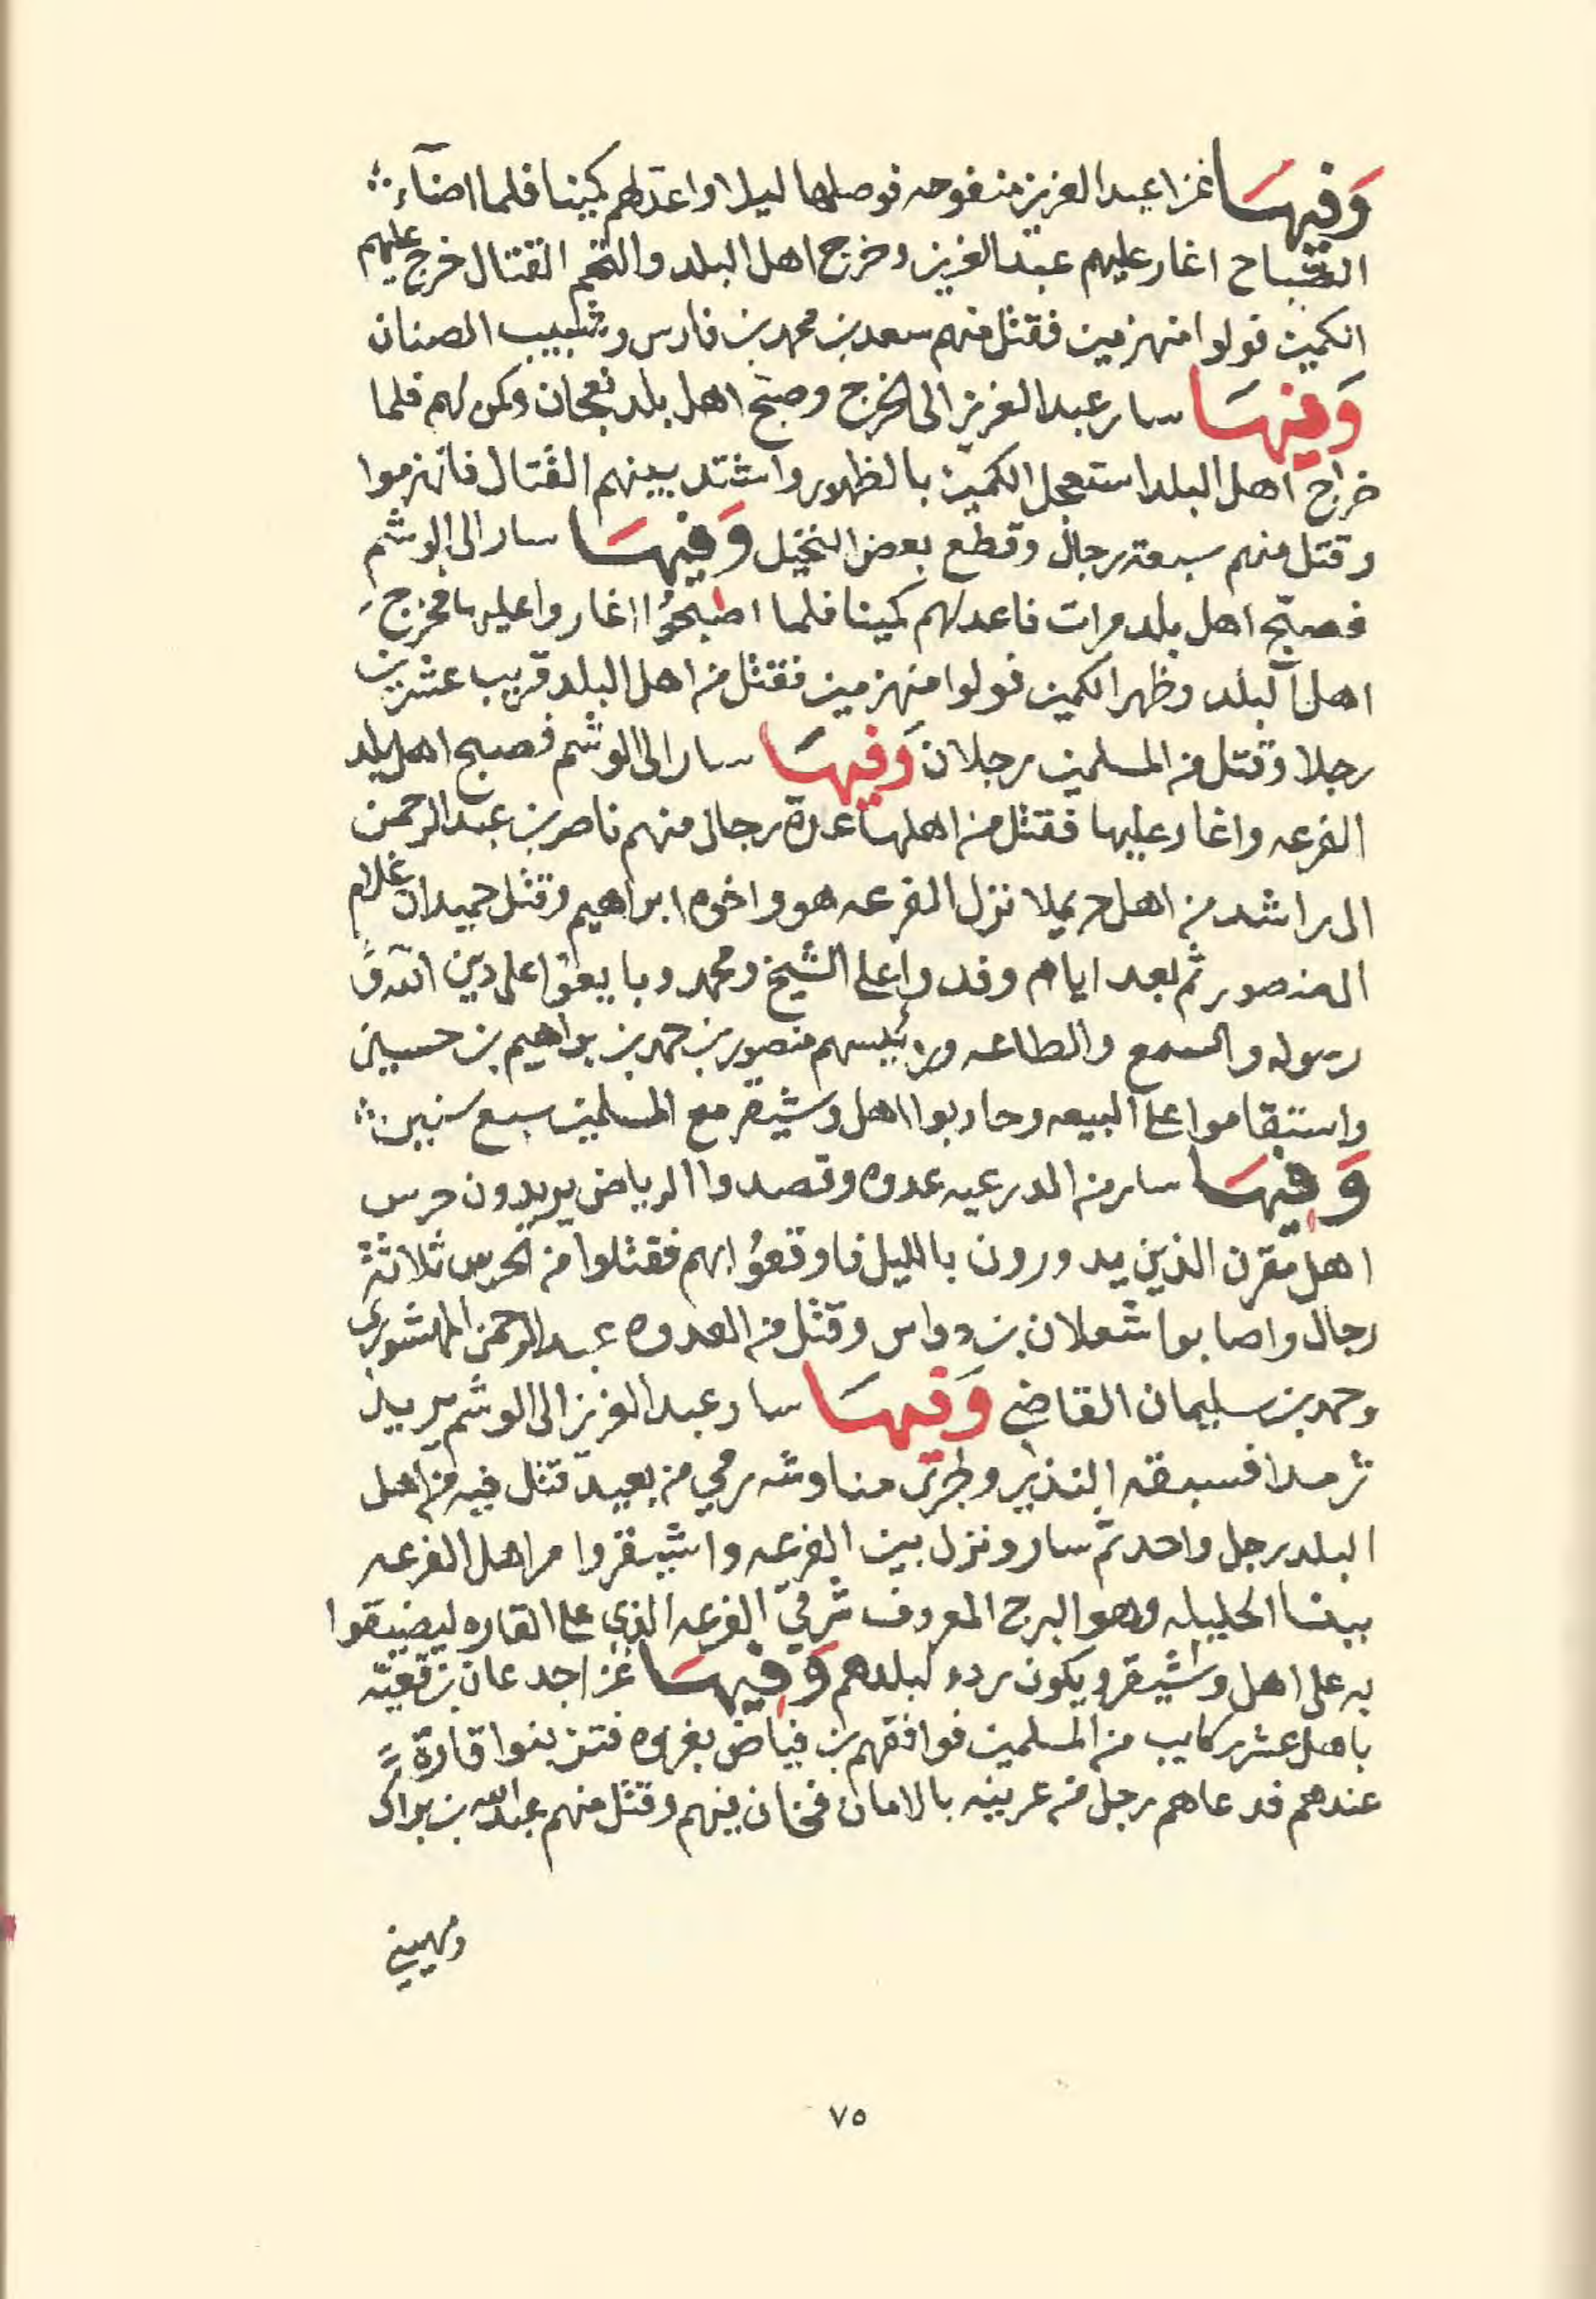 وَفيهَا غزا عبد العزيز منفوحه فوصلها ليلا واعد لهم كمينا فلما اضآء
الصباح اغار عليهم عبد العزيز وخرج اهل البلد والتحم القتال خرج عليهم
الكمين فولوا منهزمين فقتل منهم سعد بن محمد بن فارس وشبيب الصنان
وَفيهَا سار عبد العزيز الى الخرج وصبّح اهل بلد نعجان وكمن لهم فلما
خراج اهل البلد استعجل الكمين بالظهور واشتد بينهم القتال فانهزموا
وقتل منهم سبعة رجال وقطع بعض النخيل وَفيهَا سار الى الوشم
فصبّح اهل بلد مرات فاعد لهم كمينا فلما اصبحوُا اغاروا عليها فخرج
اهل البلد وظهر الكمين فولوا منهزمين فقتل من اهل البلد قريب عشرين
رجلا وقتل من المسلمين رجلان وَفيهَا سار الى الوشم فصبح اهل بلد
الفرعه واغار عليها فقتل من اهلها عدة رجال منهم ناصر بن عبد الرحمن
ال راشد من اهل حريملا نزل الفرعه هو واخوه ابراهيم وقتل حميدان غلام
المنصور ثم بعد ايام وفدوا على الشيخ ومحمد وبايعوا على دين الله و
رسوله والسمع والطاعه ورئيسهم منصور بن حمد بن براهيم بن حسين
واستقاموا على البيعه وحاربوا اهل وشيقر مع المسلمين سبع سنين
وَفيهَا سار من الدرعيه عدوه وقصدوا الرياض يريدون حرس
اهل مقرن الذين يدورون بالليل فاوقعوُا بهم فقتلوا من الحرس ثلاثة
رجال واصابوا شعلان بن دواس وقتل من العدوه عبد الرحمن المشوري
وحمد بن سليمان القاضي وَفيهَا سار عبد العزيز الى الوشم يريد
ثرمدا فسبقه النذير وجرى مناوشه رمي من بعيد قتل فيه من اهل
البلد رجل واحد ثم سار ونزل بين الفرعه واشيقر وامر اهل الفرعه
ببنا الحليله وهو البرج المعروف شرقيّ الفرعه الذي على القاره ليضيقوا
به على اهل وشيقر ويكون ردء لبلدهم وَفيهَا غزا جدعان بن قعيّه
باهل عشر ركايب من المسلمين فوافقهم بن فياض بغزوه فتزبنوا قارة
عندهم فدعاهم رجل من عرينه بالامان فخان بهم وقتل منهم عبد الله بن براك
ومهيني
٧٥